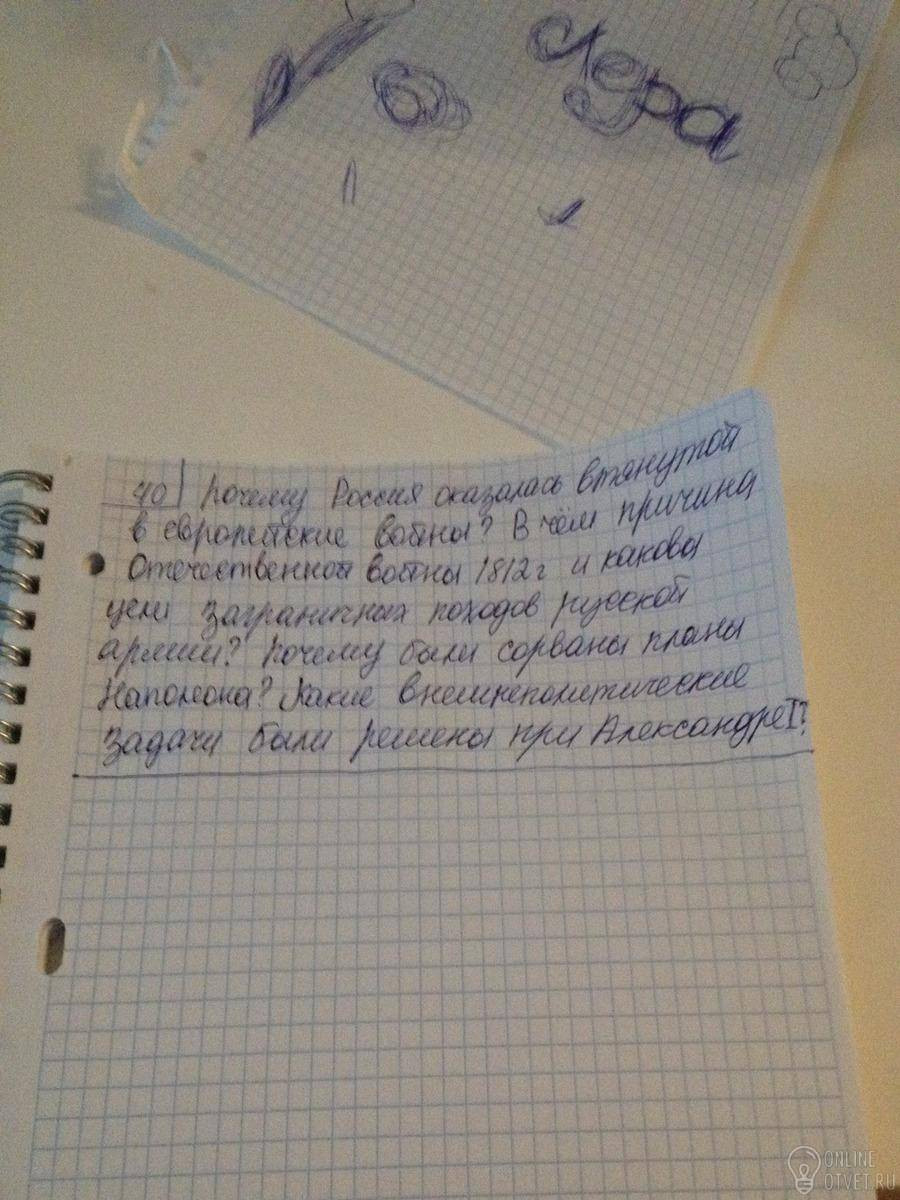 Лера
40) Почему Россия оказалась втянутой
в европейские войны? В чём причина
Отечественной войны 1812г и каковы
цели заграничных походов русской
армии? Почему были сорваны планы
Наполеона? Какие внешнеполитические
задачи были решены при Александре I?
ONLINE
OTVET.RU